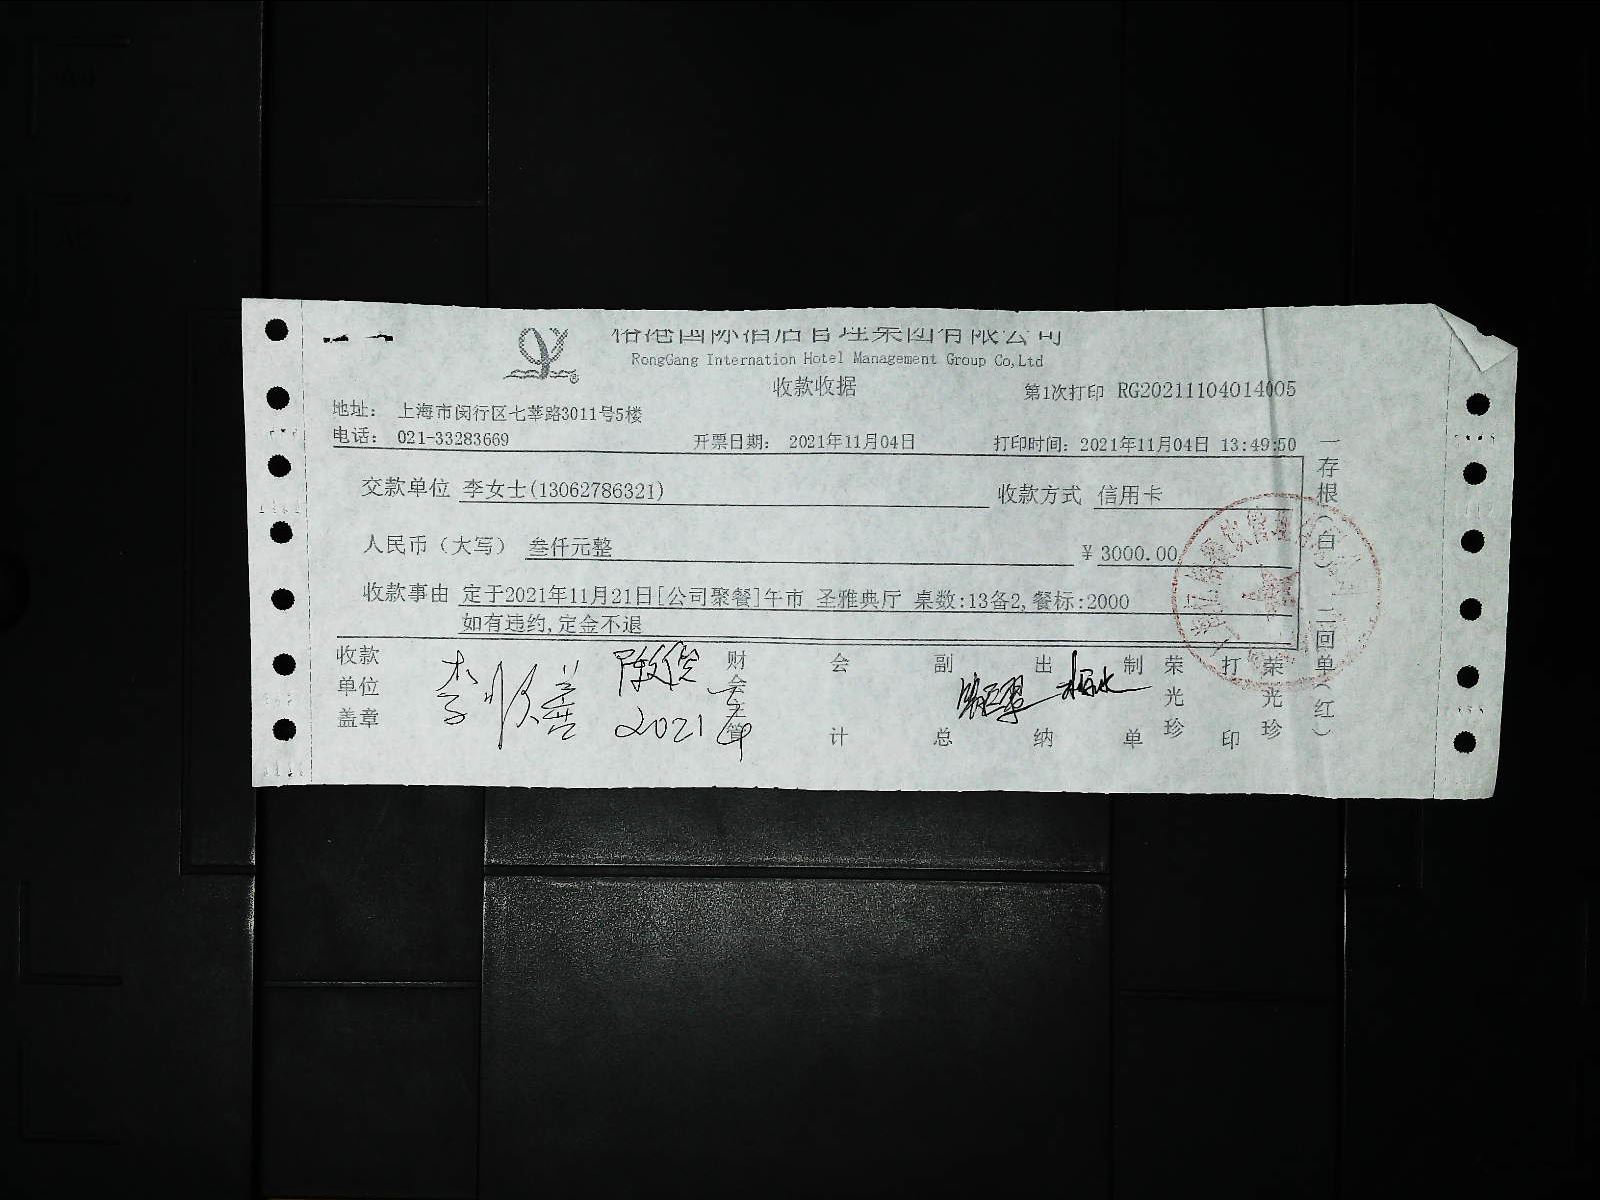 港国际酒店管理集团有限公司
RongGang Internation Hotel Management Group Co,Ltd
收款收据
第1次打印 RG20211104014005
地址： 上海市闵行区七莘路3011号5楼
电话： 021-33283669 开票日期： 2021年11月04日 打印时间：2021年11月04日 13:49:50
交款单位 李女士(13062786321) 收款方式 信用卡
人民币（大写） 叁仟元整 ¥3000.00
收款事由 定于2021年11月21日[公司聚餐]午市 圣雅典厅 桌数:13备2,餐标:2000
如有违约,定金不退
收款单位盖章 财会主管 会计 副总 出纳 制单 荣光珍 打印 荣光珍
2021
一存根(白) 二回单(红)
餐饮管理